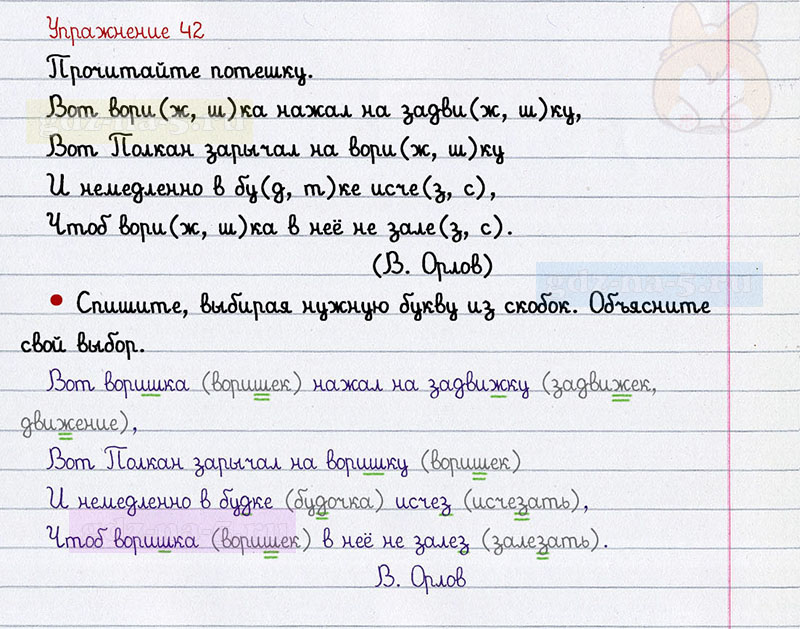 Упражнение 42
Прочитайте потешку.
Вот вори(ж, ш)ка нажал на задви(ж, ш)ку,
Вот Полкан зарычал на вори(ж, ш)ку
И немедленно в бу(д, т)ке исче(з, с),
Чтоб вори(ж, ш)ка в неё не зале(з, с).
(В. Орлов)
• Спишите, выбирая нужную букву из скобок. Объясните
свой выбор.
Вот воришка (воришек) нажал на задвижку (задвижек,
движение),
Вот Полкан зарычал на воришку (воришек)
И немедленно в будке (будочка) исчез (исчезать),
Чтоб воришка (воришек) в неё не залез (залезать).
В. Орлов
gdz-na-5.ru
gdz-na-5.ru
gdz-na-5.ru